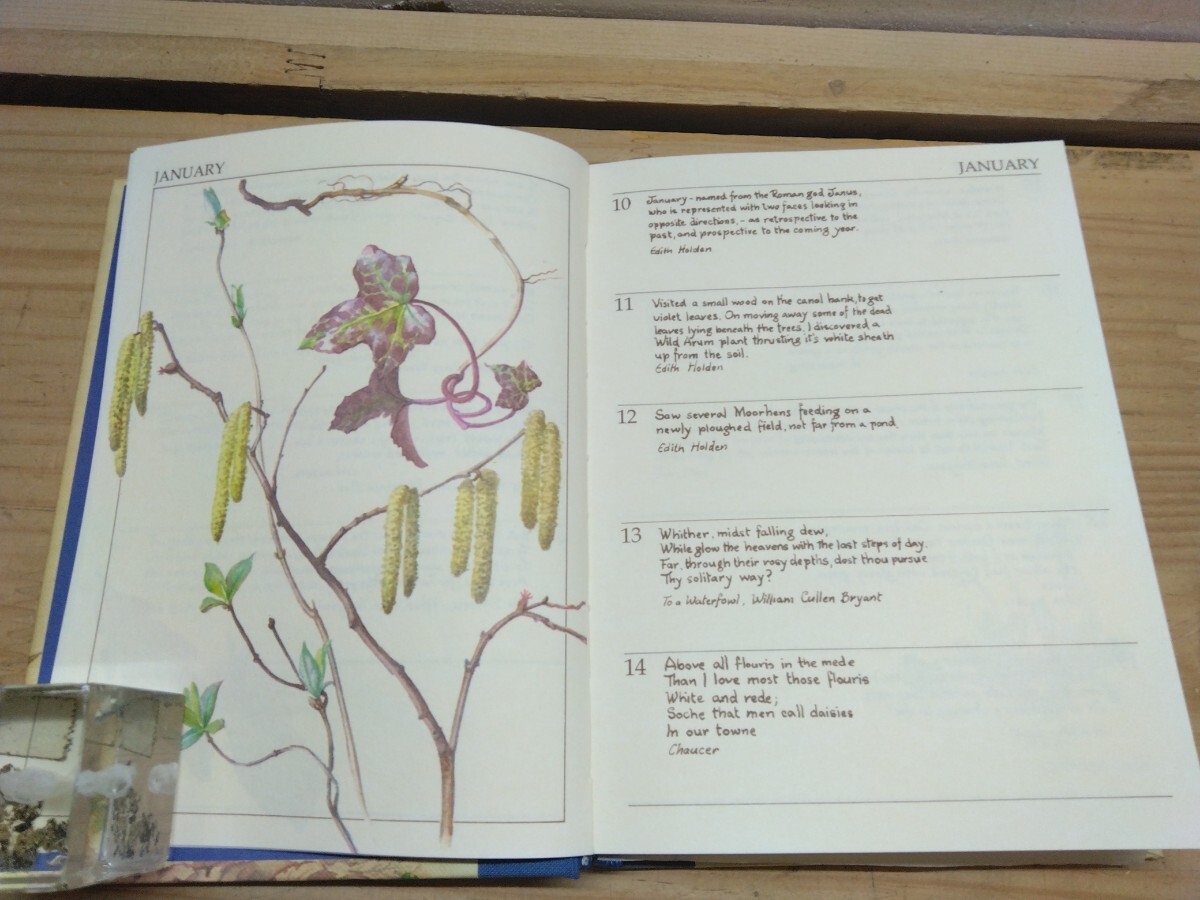 JANUARY
JANUARY
10
January - named from the Roman god Janus,
who is represented with two faces looking in
opposite directions, - as retrospective to the
past, and prospective to the coming year.
Edith Holden
11
Visited a small wood on the canal bank, to get
violet leaves. On moving away some of the dead
leaves lying beneath the trees, I discovered a
Wild Arum plant thrusting it's white sheath
up from the soil.
Edith Holden
12
Saw several Moorhens feeding on a
newly ploughed field, not far from a pond.
Edith Holden
13
Whither, midst falling dew,
While glow the heavens with the last steps of day,
Far, through their rosy depths, dost thou pursue
Thy solitary way?
To a Waterfowl, William Cullen Bryant
14
Above all flouris in the mede
Than I love most those flouris
White and rede;
Soche that men call daisies
In our towne
Chaucer